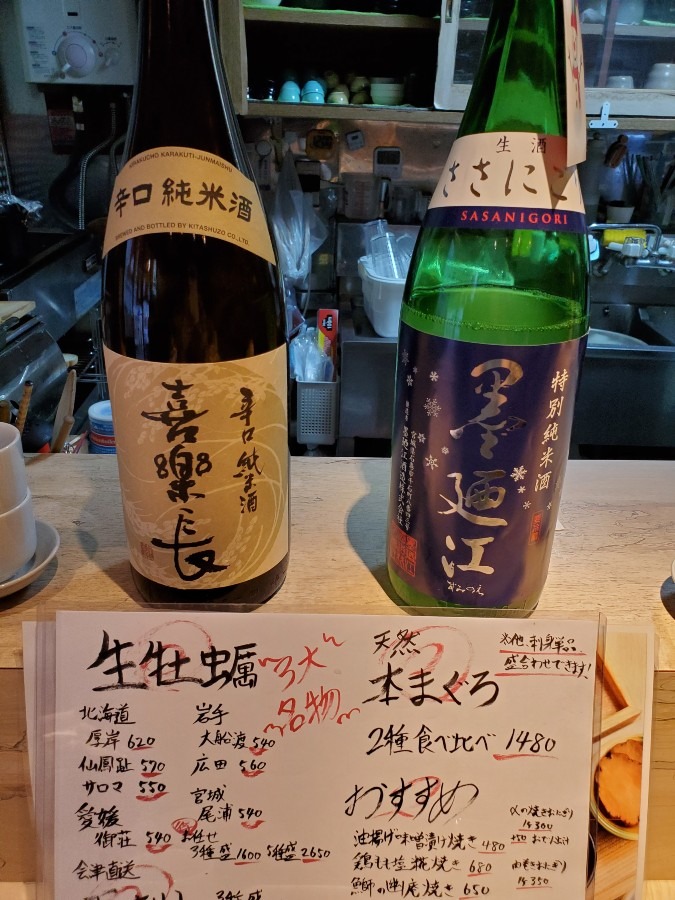 KIRAKUCHO KARAKUTI-JUNMAISHU
辛口 純米酒
BREWED AND BOTTLED BY KITASHUZO CO.,LTD.
辛口純米酒
喜楽長
生酒
ささにご
SASANIGORI
特別純米酒
墨廼江
すみのえ
墨廼江酒造株式会社
生牡蠣
3大
名物
北海道
厚岸 620
仙鳳趾 570
サロマ 550
愛媛
御荘 540
会津直送
岩手
大船渡 540
広田 560
宮城
尾浦 540
お任せ
3種盛 1600 5種盛 2650
3種盛
天然
本まぐろ
2種食べ比べ 1480
※他、刺身単品
盛合わせできます!
おすすめ
油揚げ味噌漬け焼き 480
鶏もも塩糀焼き 680
鰤の幽庵焼き 650
の焼きおにぎり
1ヶ300
+50
1ヶ350